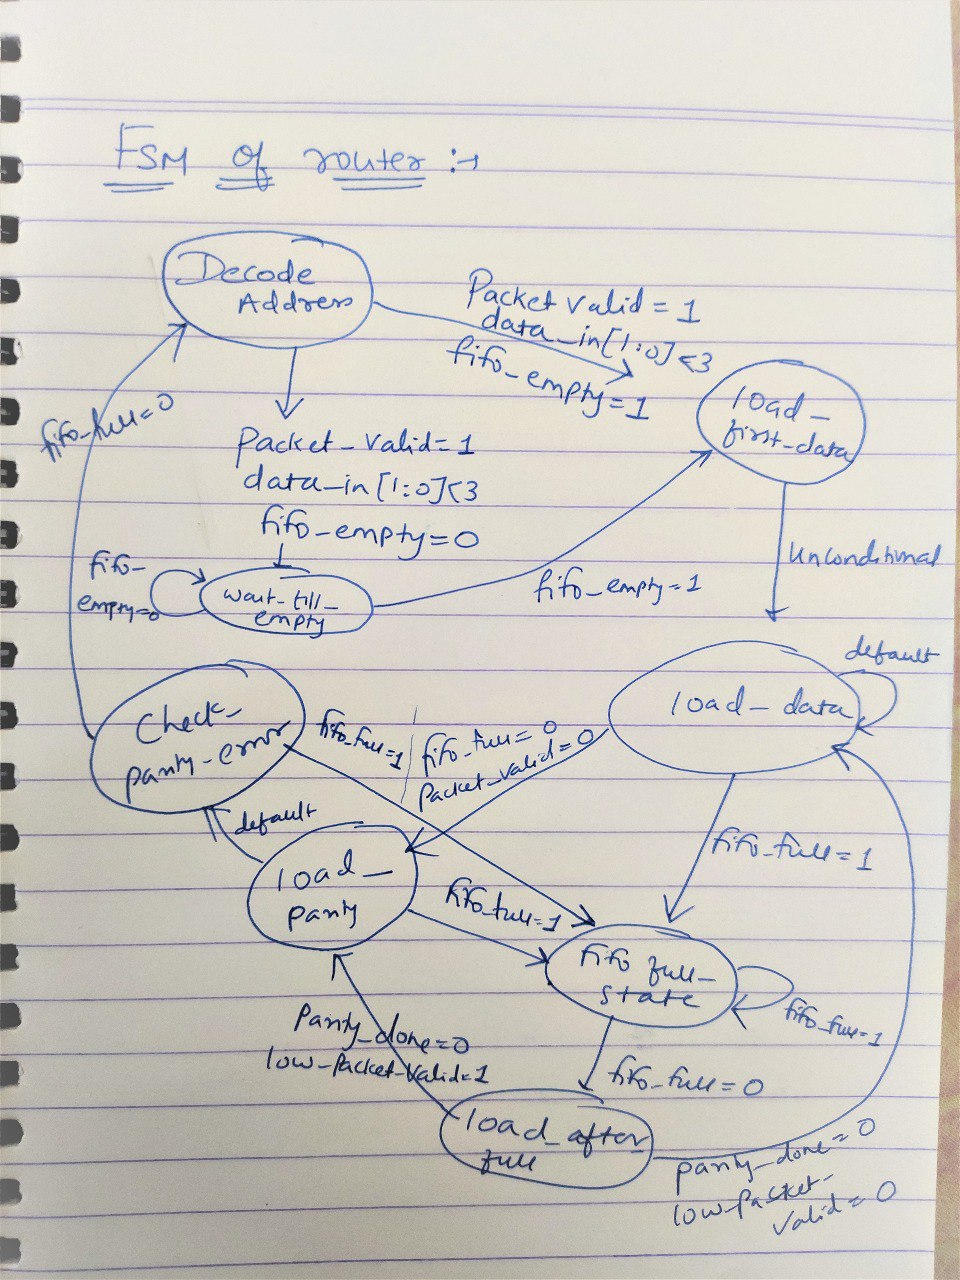 FSM of router :-
Decode
Address
Packet valid = 1
data_in[1:0] <3
fifo_empty = 1
load_
first-data
fifo_full = 0
Packet_valid = 1
data_in[1:0]<3
fifo_empty = 0
Unconditional
fifo-
empty=0
wait_till_
empty
fifo_empty = 1
default
load_data
Check_
parity-error
fifo_full=1
fifo_full = 0
Packet_valid = 0
default
fifo_full = 1
load_
parity
fifo_full=1
fifo full_
state
fifo_full=1
Parity_done=0
low_Packet_valid=1
fifo_full = 0
load_after
full
parity_done = 0
low_Packet-
valid = 0